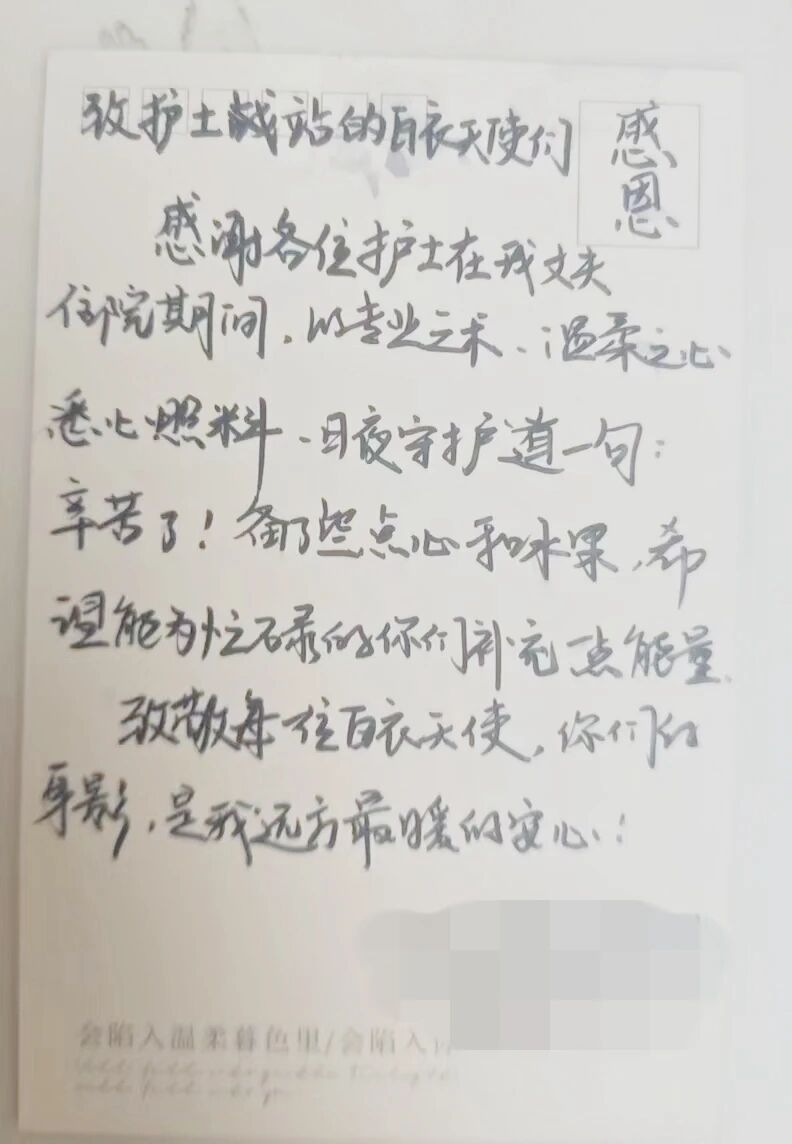 致护士战站的白衣天使们
感恩
感谢各位护士在我丈夫
住院期间，以专业之术、温柔之心
悉心照料、日夜守护道一句：
辛苦了！备了些点心和水果，希
望能为忙碌的你们补充一点能量.
致敬每一位白衣天使，你们的
身影，是我远方最暖的安心！
会陷入温柔暮色里/会陷入